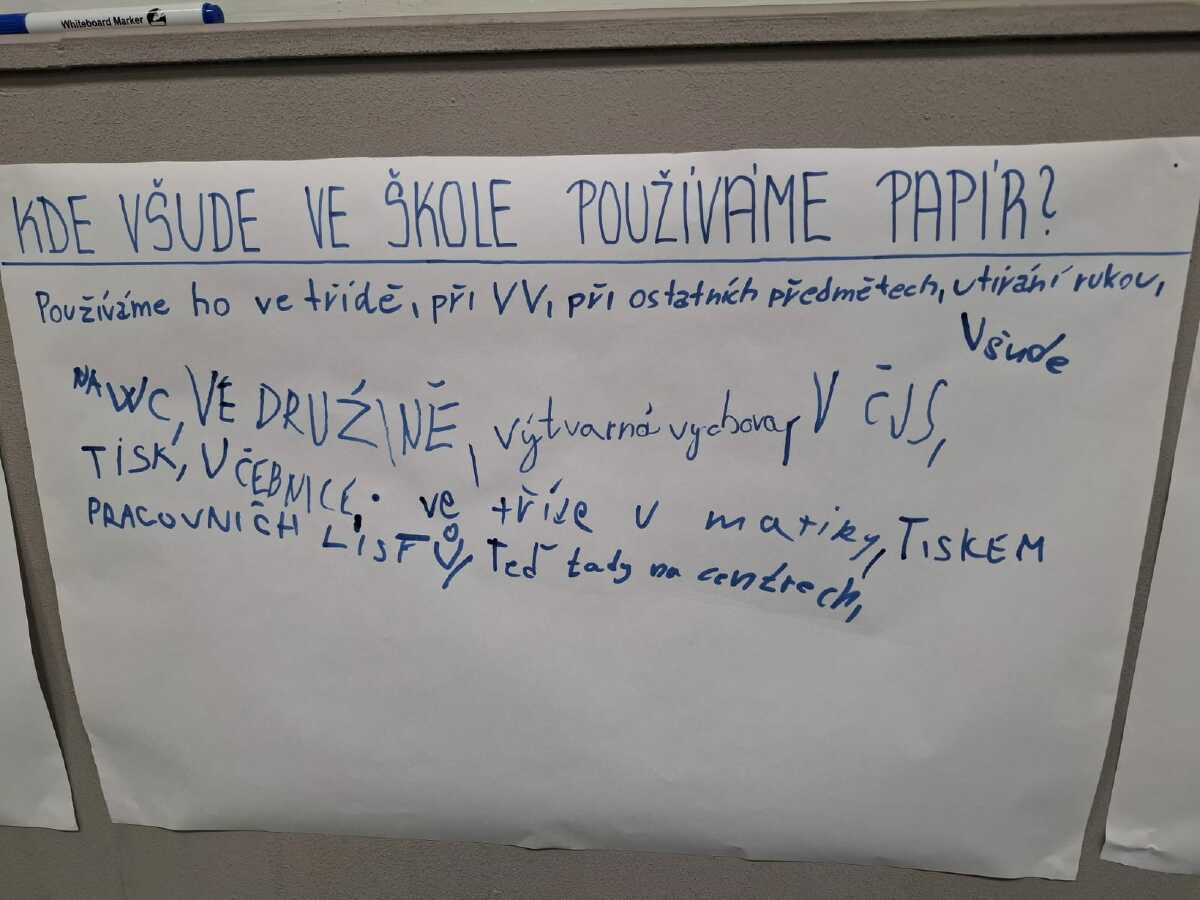 Whiteboard Marker
KDE VŠUDE VE ŠKOLE POUŽÍVÁME PAPÍR?
Používáme ho ve třídě, při VV, při ostatních předmětech, utírání rukou,
Všude
NA WC, VE DRUŽINĚ, výtvarná vychova, V ČJS,
TISK, UČEBNICE, ve tříde v matiky, TISKEM
PRACOVNIČH LISTŮ, Teď tady na centrech,